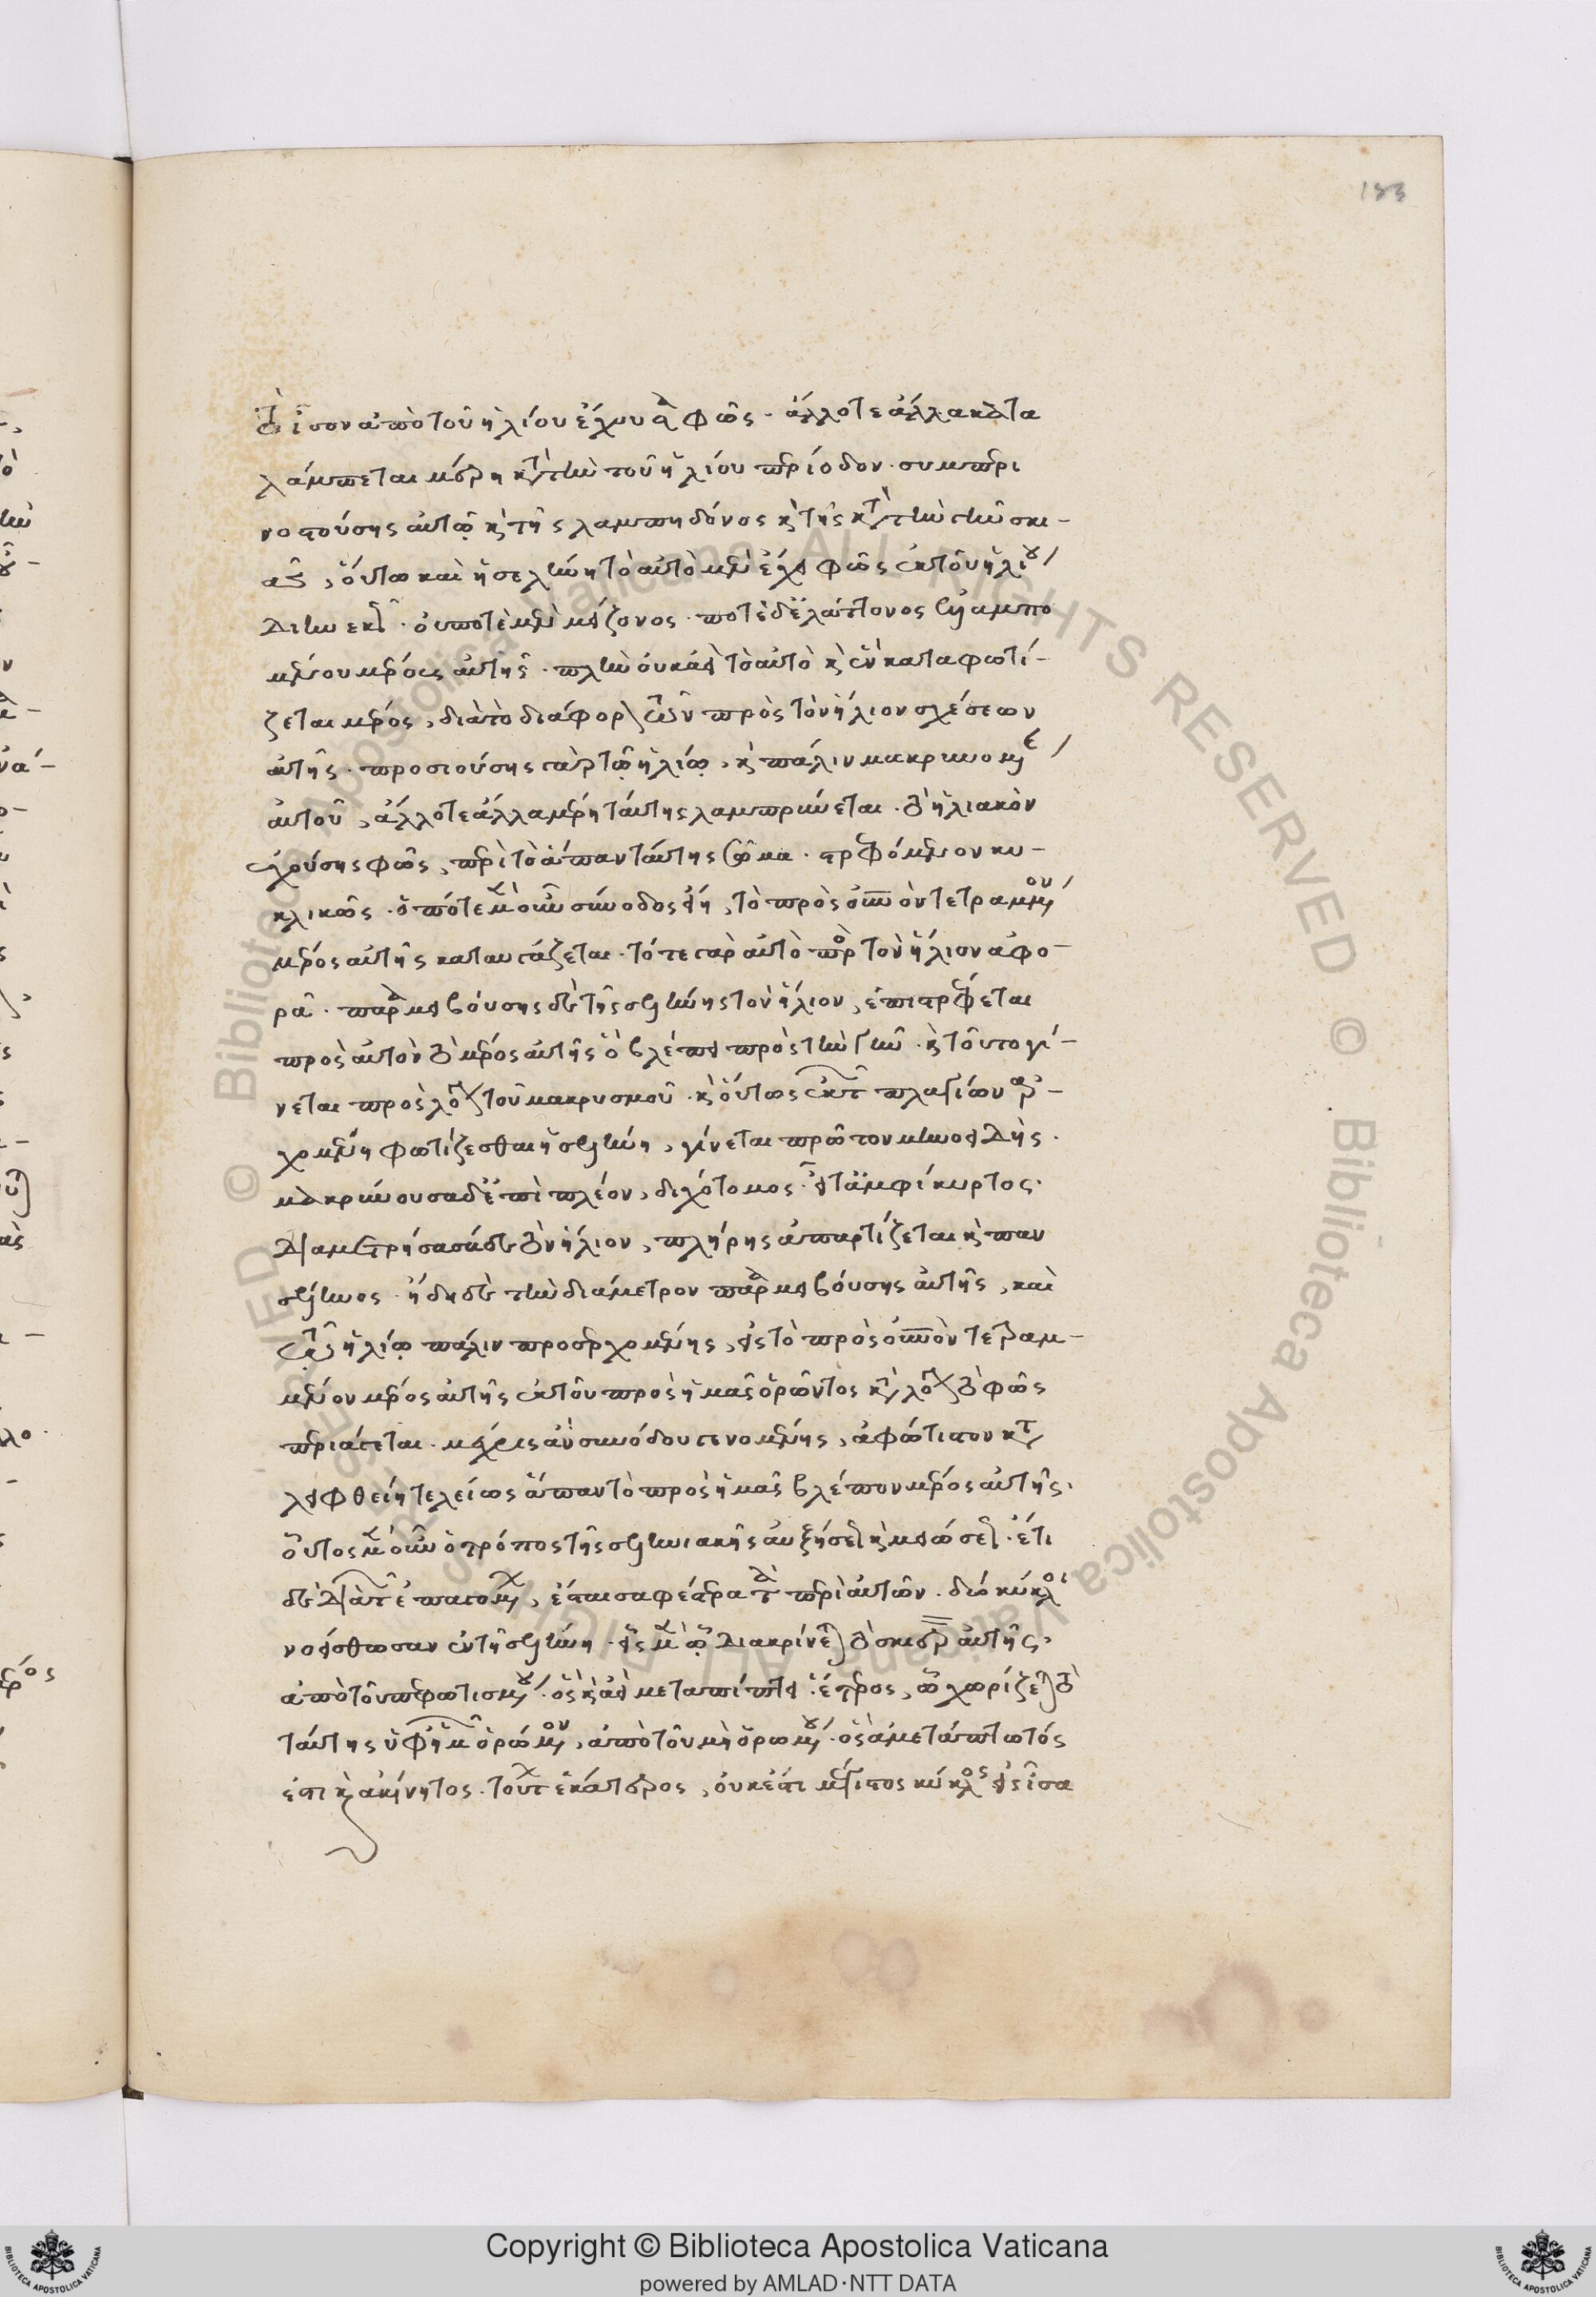 183
τὸ ἴσον ἀπὸ τοῦ ἡλίου ἔχουσα φῶς. ἄλλοτε ἄλλα κατα
λάμπεται μέρη κατὰ τὴν τοῦ ἡλίου περίοδον. συμπερι
νοστούσης αὐτῷ καὶ τῆς λαμπηδόνος καὶ τῆς κατὰ τὴν γῆν σκι-
ᾶς, οὕτω καὶ ἡ σελήνη τὸ αὐτὸ μὲν ἔχει φῶς ἐκ τοῦ ἡλίου
διηνεκῶς. οὐ ποτὲ μὲν μείζονος. ποτὲ δὲ ἐλάττονος
μένου μέρους αὐτῆς. πλὴν οὐκ ἀεὶ τὸ αὐτὸ καὶ ἓν καταφωτί-
ζεται μέρος, διὰ τὸ διάφορον τῶν πρὸς τὸν ἥλιον σχέσεων
αὐτῆς. προσιούσης γὰρ τῷ ἡλίῳ, καὶ πάλιν μακρυνομένης
αὐτοῦ, ἄλλοτε ἄλλα μέρη ταύτης λαμπρύνεται. τὸ ἡλιακὸν
ἐχούσης φῶς, περὶ τὸ ἅπαν ταύτης σῶμα. στρεφόμενον κυ-
κλικῶς. ὁπότε μὲν οὖν σύνοδος εἴη, τὸ πρὸς οὐρανὸν τετραμμένον
μέρος αὐτῆς καταυγάζεται. τότε γὰρ αὐτὸ πρὸς τὸν ἥλιον ἀφο-
ρᾶ. παραμειβούσης δὲ τῆς σελήνης τὸν ἥλιον, ἐπιστρέφεται
πρὸς αὐτὸν τὸ μέρος αὐτῆς ὃ βλέπει πρὸς τὴν γῆν. καὶ τοῦτο γί-
νεται πρὸς λόγον τοῦ μακρυσμοῦ. καὶ οὕτως ἐκ τῶν πλαγίων ἀρ-
χομένη φωτίζεσθαι ἡ σελήνη, γίνεται πρῶτον μηνοειδής.
μακρύνουσα δὲ ἐπὶ πλέον, διχότομος. εἶτα ἀμφίκυρτος.
διαμετρήσασα δὲ τὸν ἥλιον, πλήρης ἀπαρτίζεται καὶ παν
σέληνος. ἤδη δὲ τὴν διάμετρον παραμειβούσης αὐτῆς, καὶ
τῷ ἡλίῳ πάλιν προσερχομένης, εἰς τὸ πρὸς οὐρανὸν τετραμ-
μένον μέρος αὐτῆς ἐκ τοῦ πρὸς ἡμᾶς ὁρῶντος κατὰ λόγον τὸ φῶς
περιάγεται. μέχρις ἂν συνόδου γενομένης, ἀφώτιστον κατα
λειφθείη τελείως ἅπαν τὸ πρὸς ἡμᾶς βλέπον μέρος αὐτῆς.
οὗτος μὲν οὖν ὁ τρόπος τῆς σεληνιακῆς αὐξήσεως καὶ μειώσεως. ἔτι
δὲ διὰ τῶν ἐπαγομένων, ἔσται σαφέστερα τὰ περὶ αὐτῶν. δύο κύκλοι
νοείσθωσαν ἐν τῇ σελήνῃ. εἷς μὲν ᾧ διακρίνεται τὸ σκιερὸν αὐτῆς.
ἀπὸ τοῦ πεφωτισμένου. ὃς καὶ ἀεὶ μεταπίπτει. ἕτερος, ᾧ χωρίζεται τὸ
ταύτης ὑφ' ἡμῶν ὁρώμενον, ἀπὸ τοῦ μὴ ὁρωμένου. ὃς ἀμετάπτωτός
ἐστι καὶ ἀκίνητος. τούτων ἑκάτερος, οὐκ ἔστι μέγιστος κύκλος εἰς ἴσα